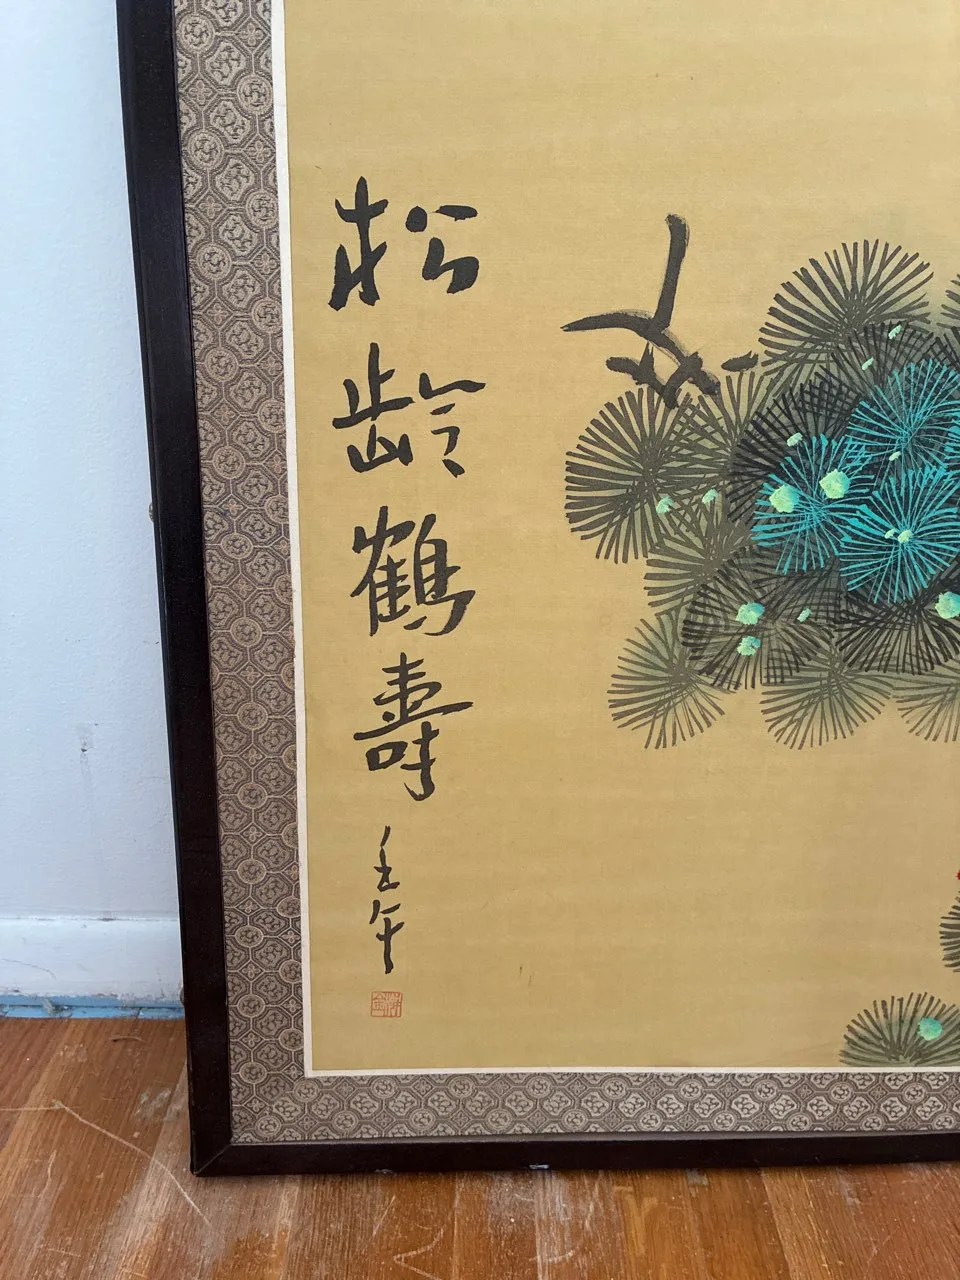 松齡鶴壽
壬午